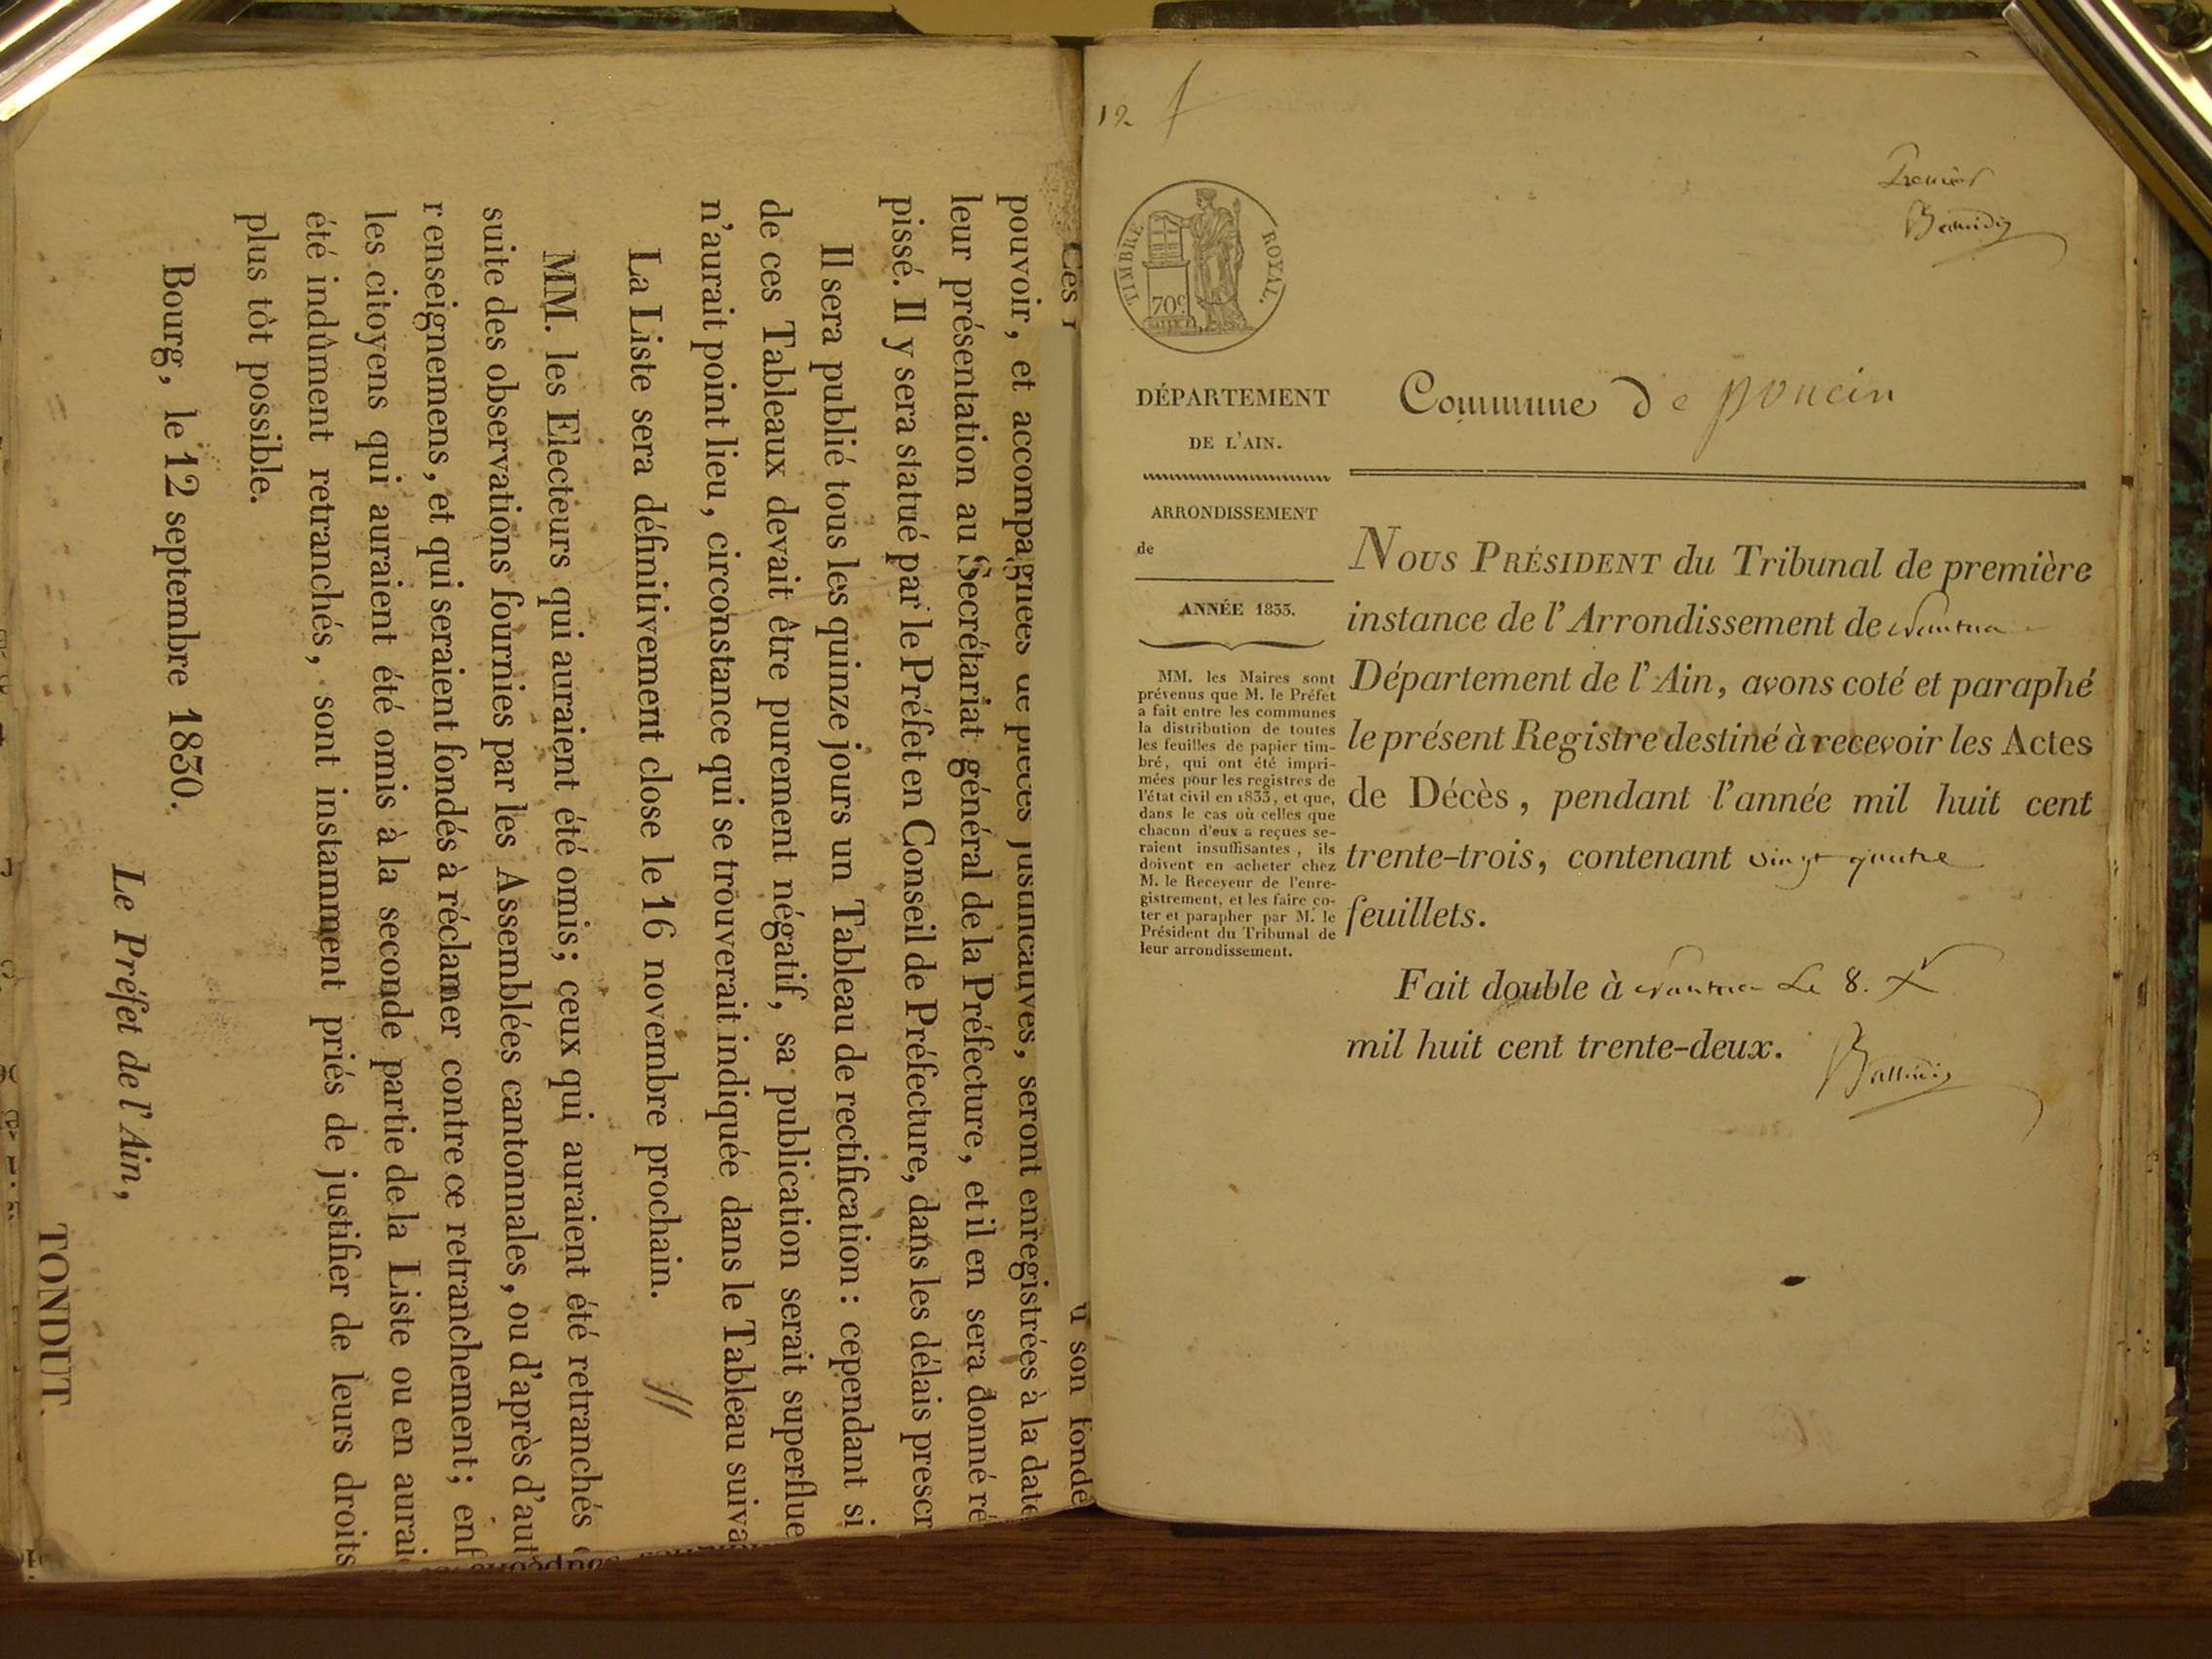 Ces r
u son fondé
pouvoir, et accompagnées de pièces justificatives, seront enregistrées à la date
leur présentation au Secrétariat général de la Préfecture, et il en sera donné ré
pissé. Il y sera statué par le Préfet en Conseil de Préfecture, dans les délais prescr
Il sera publié tous les quinze jours un Tableau de rectification : cependant si
de ces Tableaux devait être purement négatif, sa publication serait superflue
n'aurait point lieu, circonstance qui se trouverait indiquée dans le Tableau suiva
La Liste sera définitivement close le 16 novembre prochain.
MM. les Electeurs qui auraient été omis; ceux qui auraient été retranchés
suite des observations fournies par les Assemblées cantonnales, ou d'après d'aut
renseignemens, et qui seraient fondés à réclamer contre ce retranchement; enf
les citoyens qui auraient été omis à la seconde partie de la Liste ou en aurai
été indûment retranchés, sont instamment priés de justifier de leurs droits
plus tôt possible.
Bourg, le 12 septembre 1830.
Le Préfet de l'Ain,
TONDUT.
12
Premier
TIMBRE ROYAL.
70c
DÉPARTEMENT
DE L'AIN.
ARRONDISSEMENT
de
ANNÉE 1833.
MM. les Maires sont
prévenus que M. le Préfet
a fait entre les communes
la distribution de toutes
les feuilles de papier tim-
bré, qui ont été impri-
mées pour les registres de
l'état civil en 1833, et que,
dans le cas où celles que
chacun d'eux a reçues se-
raient insuffisantes, ils
doivent en acheter chez
M. le Receveur de l'enre-
gistrement, et les faire co-
ter et parapher par M. le
Président du Tribunal de
leur arrondissement.
Commune de poncin
NOUS PRÉSIDENT du Tribunal de première
instance de l'Arrondissement de Nantua
Département de l'Ain, avons coté et paraphé
le présent Registre destiné à recevoir les Actes
de Décès, pendant l'année mil huit cent
trente-trois, contenant vingt quatre
feuillets.
Fait double à Nantua Le 8. Xr
mil huit cent trente-deux.